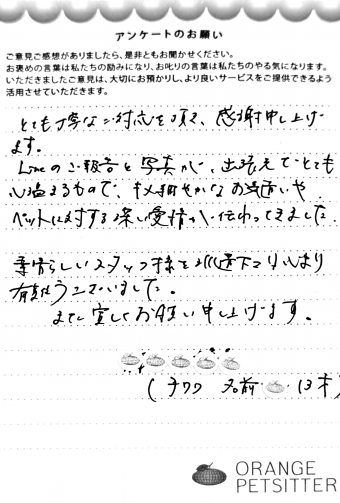 アンケートのお願い
ご意見ご感想がありましたら、是非ともお聞かせください。
お褒めの言葉は私たちの励みになり、お叱りの言葉は私たちのやる気になります。
いただきましたご意見は、大切にお預かりし、より良いサービスをご提供できるよう
活用させていただきます。
とても丁寧なご対応を頂き、感謝申し上げ
ます。
Lineのご報告と写真が、出張先でとても
心温まるもので、きめ細やかなお気遣いや
ペットに対する深い愛情が伝わってきました。
素晴らしいスタッフ様を派遣下さり、心より
有難うございました。
また宜しくお願い申し上げます。
(チワワ 名前 13才)
ORANGE
PETSITTER